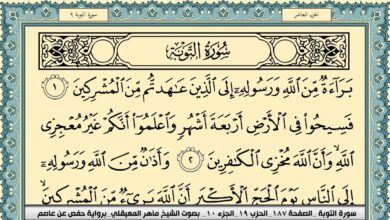 الجزء العاشر
سورة التوبة ٩
سُورَةُ التَّوْبَةِ
بَرَآءَةٌ مِّنَ ٱللَّهِ وَرَسُولِهِۦٓ إِلَى ٱلَّذِينَ عَٰهَدتُّم مِّنَ ٱلْمُشْرِكِينَ ١
فَسِيحُوا۟ فِى ٱلْأَرْضِ أَرْبَعَةَ أَشْهُرٍ وَٱعْلَمُوٓا۟ أَنَّكُمْ غَيْرُ مُعْجِزِى
ٱللَّهِ وَأَنَّ ٱللَّهَ مُخْزِى ٱلْكَٰفِرِينَ ٢ وَأَذَٰنٌ مِّنَ ٱللَّهِ وَرَسُولِهِۦٓ
إِلَى ٱلنَّاسِ يَوْمَ ٱلْحَجِّ ٱلْأَكْبَرِ أَنَّ ٱللَّهَ بَرِىٓءٌ مِّنَ ٱلْمُشْرِكِينَ
سورة التوبة _ الصفحة ١٨٧ _ الحزب ١٩ _ الجزء ١٠ _ بصوت الشيخ ماهر المعيقلي _ برواية حفص عن عاصم